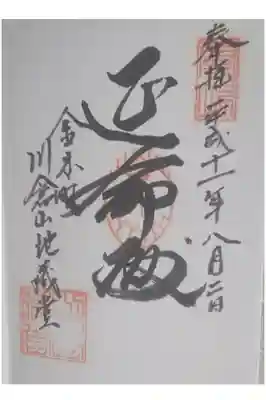 奉拝 平成十一年八月二日
延命殿
金木町
川倉山地蔵堂